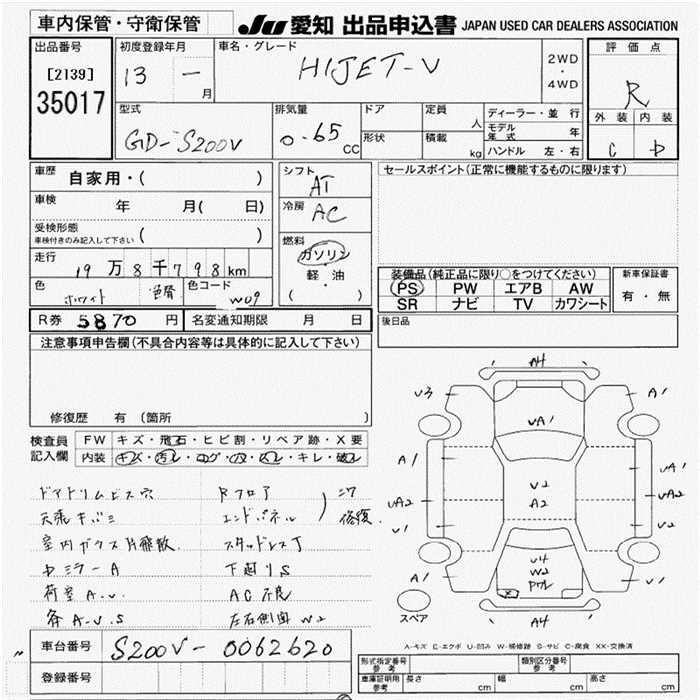 車内保管・守衛保管
JU 愛知 出品申込書 JAPAN USED CAR DEALERS ASSOCIATION
出品番号
[2139]
35017
初度登録年月
13 一 月
車名・グレード
HIJET-V
2WD
・
4WD
評価点
R
外装 内装
C D
型式
GD-S200V
排気量
0.65 CC
ドア
形状
定員 人
積載 kg
ディーラー・並行
モデル年式 年
ハンドル 左・右
車歴 自家用・( )
車検 年 月( 日)
受検形態
車検付きのみ記入して下さい ( )
走行 19万8千798km
色 ホワイト 色替 色コード W09
シフト AT
冷房 AC
燃料
ガソリン
軽・油
( )
セールスポイント(正常に機能するものに限ります)
装備品(純正品に限り○をつけてください)
PS PW エアB AW
SR ナビ TV カワシート
新車保証書
有・無
R券 5870 円 名変通知期限 月 日
後日品
注意事項申告欄(不具合内容等は具体的に記入して下さい)
修復歴 有 (箇所 )
検査員記入欄
FW キズ・飛石・ヒビ割・リペア跡・X要
内装 キズ・汚レ・コゲ・穴・スレ・キレ・破レ
ドアトリムビス穴 Rフロア
エンドパネル
修復
室内ガラス片飛散 スタッドレス
中ミラーA 下廻りS
荷室A.U. AC不良
各A.U.S 左右側面W2
車台番号 S200V-0062620
登録番号
A4
U3 A1
UA1
A1 UA1
U2
A2
UA2 UA2
U1 U2
U4
W2
A1 U1
A4
スペア
A-キズ E-エクボ U-凹み W-補修跡 S-サビ C-腐食 XX-交換済
形式指定番号 参考
類別区分番号 参考
車庫証明用 参考 長さ cm 幅 cm 高さ cm